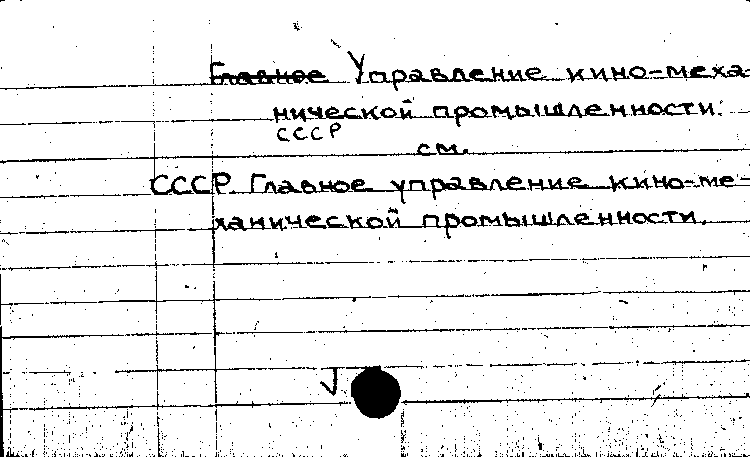 Главное Управление кино-меха-
нической промышленности.
СССР
см.
СССР. Главное управление кино-ме-
ханической промышленности.